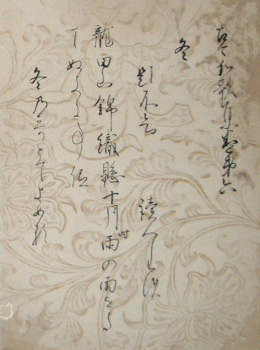 古今和歌集巻第六
冬
題不知 読人しらす
龍田山錦織懸十月時雨の雨を多
冬乃うたとてよめる